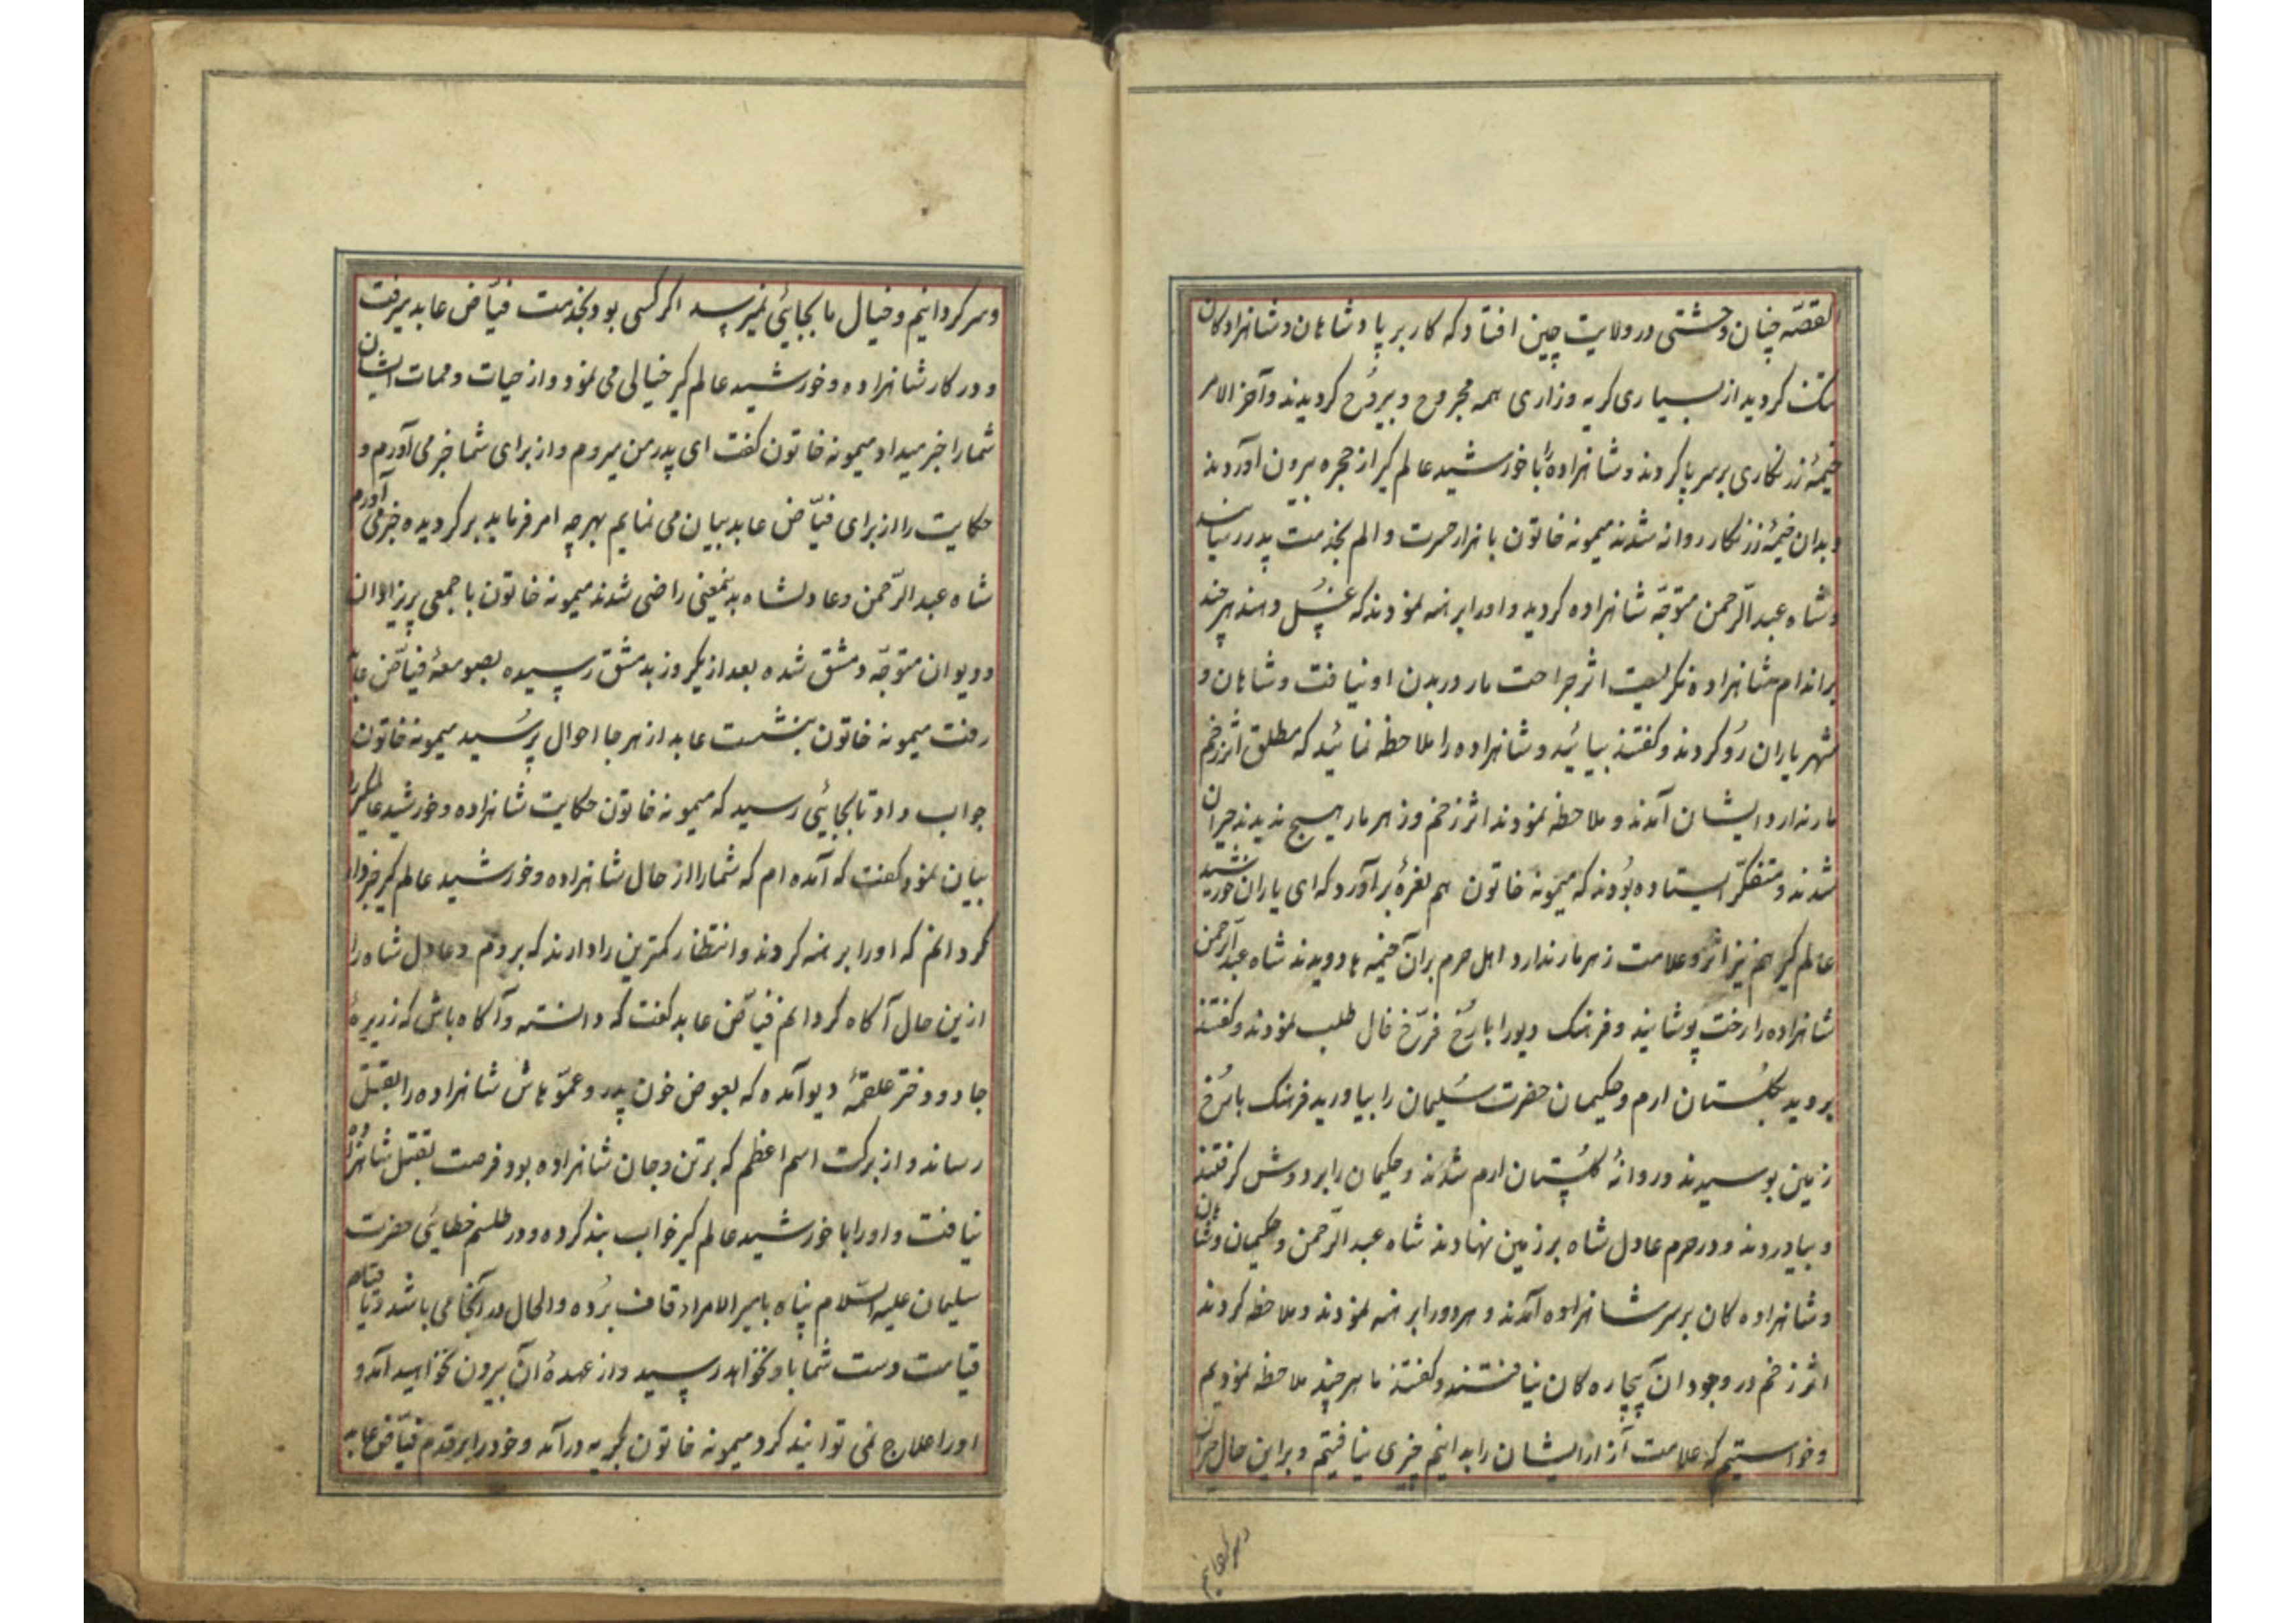 القصّه چنان وحشتی در ولایت چین افتاد که کار بر پادشاهان و شاهزادکان
تنک کردید از بسیاری کریه و زاری همه مجروح و بیروح کردیدند و آخر الامر
خیمۀ زرنکاری بر سر پا کردند و شاهزاده را با خورشید عالم کیر از حجره بیرون آوردند
و بدان خیمۀ زرنکار روانه شدند میمونه خاتون با هزار حسرت و الم بخدمت پدر رسانید
و شاه عبد الرّحمن متوّجه شاهزاده کردید و او را برهنه نمودند که غسل دهند هر چند
بر اندام شاهزاده نکریست اثر جراحت مار در بدن او نیافت و شاهان و
شهریاران رو کردند و کفتند بیائید و شاهزاده را ملاحظه نمائید که مطلق اثر زخم
مار ندارد ایشان آمدند و ملاحظه نمودند اثر زخم و زهر مار هیچ ندیدند حیران
شدند و متفکّر ایستاده بودند که میمونه خاتون هم نعرۀ برآورد که ای یاران خورشید
عالم کیر هم نیز اثر و علامت زهر مار ندارد اهل حرم بر آن خیمه ها دویدند شاه عبد الرّحمن
شاهزاده را رخت پوشانید و فرهنک دیو را با رخ فرّخ فال طلب نمودند و کفتند
بروید بکلستان ارم و حکیمان حضرت سلیمان را بیاورید فرهنک با رخ
زمین بوسیدند و روانۀ کلستان ارم شدند و حکیمان را بر دوش کرفتند
و بیاوردند و در حرم عادل شاه بر زمین نهادند شاه عبد الرّحمن و حکیمان و شاهان
و شاهزاده کان بر سر شاهزاده آمدند و هر دو را برهنه نمودند و ملاحظه کردند
اثر زخم در وجود آن بیچاره کان نیافتند و کفتند ما هر چند ملاحظه نمودیم
و خواستیم که علامت آزار ایشان را بدانیم چیزی نیافتیم و بر این حال حیران
و سر کردانیم
و سر کردانیم و خیال ما بجایئی نمیرسد اکر کسی بود بخدمت فیّاض عابد میرفت
و در کار شاهزاده و خورشید عالم کیر خیالی می نمود و از حیات و ممات ایشان
شما را خبر میداد میمونه خاتون کفت ای پدر من میروم و از برای شما خبر می آورم و
حکایت را از برای فیّاض عابد بیان می نمایم بهر چه امر فرماید بر کردیده خبر می آورم
شاه عبد الرّحمن و عادلشاه بدینمعنی راضی شدند میمونه خاتون با جمعی پریزادان
و دیوان متوّجه دمشق شده بعد از یکروز بدمشق رسیده بصومعۀ فیّاض عابد
رفت میمونه خاتون بنشست عابد از هر جا احوال پرسید میمونه خاتون
جواب داد تا بجایئی رسید که میمونه خاتون حکایت شاهزاده و خورشید عالمکیر را
بیان نمود کفت که آمده ام که شما را از حال شاهزاده و خورشید عالم کیر خبردار
کردانم که او را برهنه کردند و انتظار کمترین را دارند که بروم و عادل شاه را
ازین حال آکاه کردانم فیّاض عابد کفت که دانسته و آکاه باش که زریرۀ
جادو دختر علقمۀ دیو آمده که بعوض خون پدر و عمّوهاش شاهزاده را بقتل
رساند و از برکت اسم اعظم که بر تن و جان شاهزاده بود فرصت بقتل شاهزاده
نیافت و او را با خورشید عالم کیر خواب بند کرده و در طلسم خطایئی حضرت
سلیمان علیه السّلام پناه بامیر الامراد قاف برده و الحال در آنجا می باشد و تا قیام
قیامت دست شما باو نخواهد رسید و از عهدۀ آن بیرون نخواهید آمد و
او را علاج نمی توانید کرد میمونه خاتون بکریه درآمد و خود را بر قدم فیّاض عابد